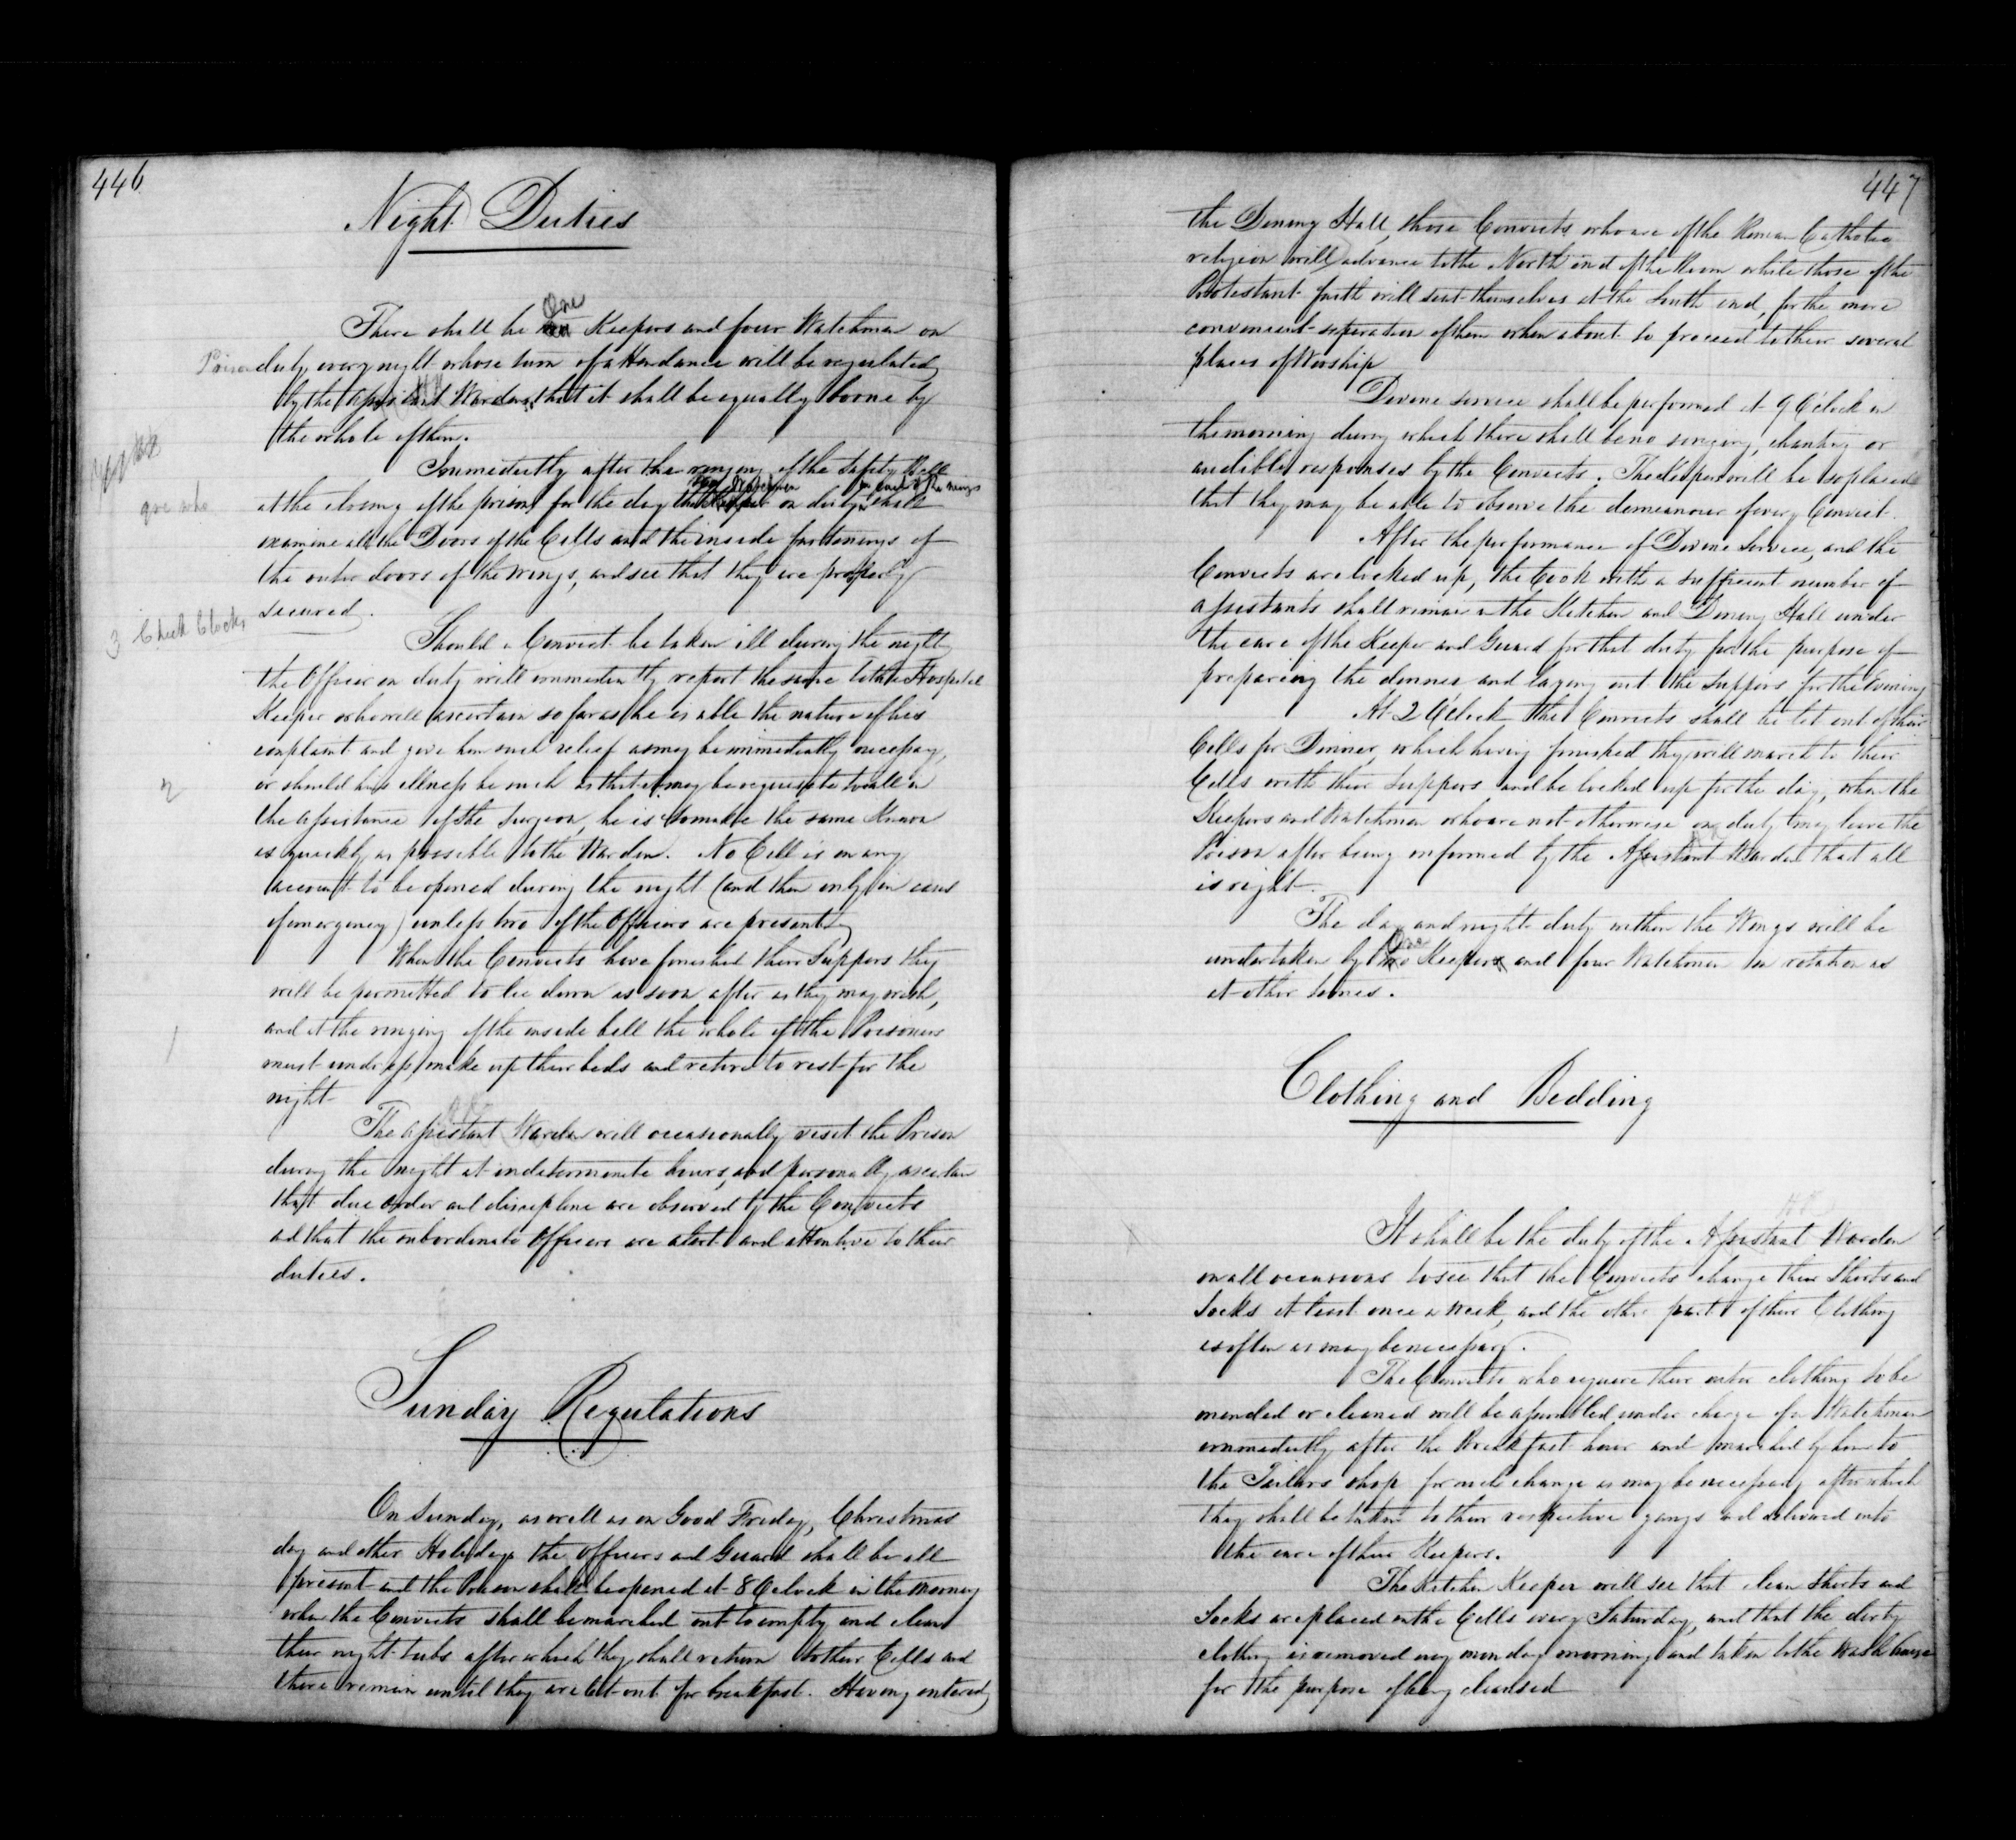 446
Night Duties
There shall be One Keepers and four Watchmen on
Prison duty every night whose turn of attendance will be regulated
by the Assistant Warden, that it shall be equally borne by
the whole of them.
Immediately after the ringing of the Safety Bell
two Watchmen in each of the wings
at the closing of the prison for the day the on duty shall
examine all the Doors of the Cells and the inside fastenings of
the outer doors of the wings, and see that they are properly
secured.
3 Check Clocks
Should a Convict be taken ill during the night
the Officer on duty will immediately report the same to the Hospital
Keeper who will ascertain so far as he is able the nature of his
complaint and give him such relief as may be immediately necessary,
2
or should his illness be such as that it may be requisite to call in
the assistance of the Surgeon, he is to make the same Known
as quickly as possible to the Warden. No Cell is on any
account to be opened during the night (and then only in cases
of emergency) unless two of the Officers are present
When the Convicts have finished their Suppers they
will be permitted to lie down as soon after as they may wish,
and at the ringing of the inside bell the whole of the Prisoners
1
must undress, make up their beds and retire to rest for the
night
The Assistant Warden will occasionally visit the Prison
during the night at indeterminate hours, and personally ascertain
that due order and discipline are observed by the Convicts
and that the subordinate Officers are alert and attentive to their
duties.
Sunday Regulations
On Sunday, as well as on Good Friday, Christmas
day and other Holidays the Officers and Guard shall be all
present and the Prison shall be opened at 8 O'clock in the morning
when the Convicts shall be marched out to empty and clean
their night tubs after which they shall return to their Cells and
there remain until they are let out for breakfast. Having entered
447
the Dining Hall, those Convicts who are of the Roman Catholic
religion will advance to the North end of the Room while those of the
Protestant faith will seat themselves at the South end, for the more
convenient separation of them when about to proceed to their several
places of Worship
Divine service shall be performed at 9 O'clock in
the morning during which there shall be no singing, chanting or
audible responses by the Convicts. The Keepers will be so placed
that they may be able to observe the demeanour of every Convict.
After the performance of Divine Service, and the
Convicts are locked up, the Cook with a sufficient number of
assistants shall remain in the Kitchen and Dining Hall under
the care of the Keeper and Guard for that duty for the purpose of
preparing the dinner and laying out the Suppers for the Evening
At 2 O'clock the Convicts shall be let out of their
Cells for Dinner, which having finished they will march to their
Cells with their Suppers and be locked up for the day, when the
Keepers and Watchmen who are not otherwise on duty may leave the
Prison after being informed by the Assistant Warden that all
is right.
The day and night duty within the Wings will be
undertaken by One Keeper and four Watchmen in rotation as
at other times.
Clothing and Bedding
It shall be the duty of the Assistant Warden
on all occasions to see that the Convicts change their Shirts and
Socks at least once a week, and the other part of their Clothing
as often as may be necessary.
The Convicts who require their outer clothing to be
mended or cleaned will be assembled under charge of a Watchman
immediately after the Breakfast hour and marched by him to
the Tailors shop for such change as may be necessary after which
they shall be taken to their respective gangs and delivered into
the care of their Keepers.
The Kitchen Keeper will see that clean Shirts and
Socks are placed in the Cells every Saturday, and that the dirty
clothing is removed every monday morning and taken to the Wash house
for the purpose of being cleansed